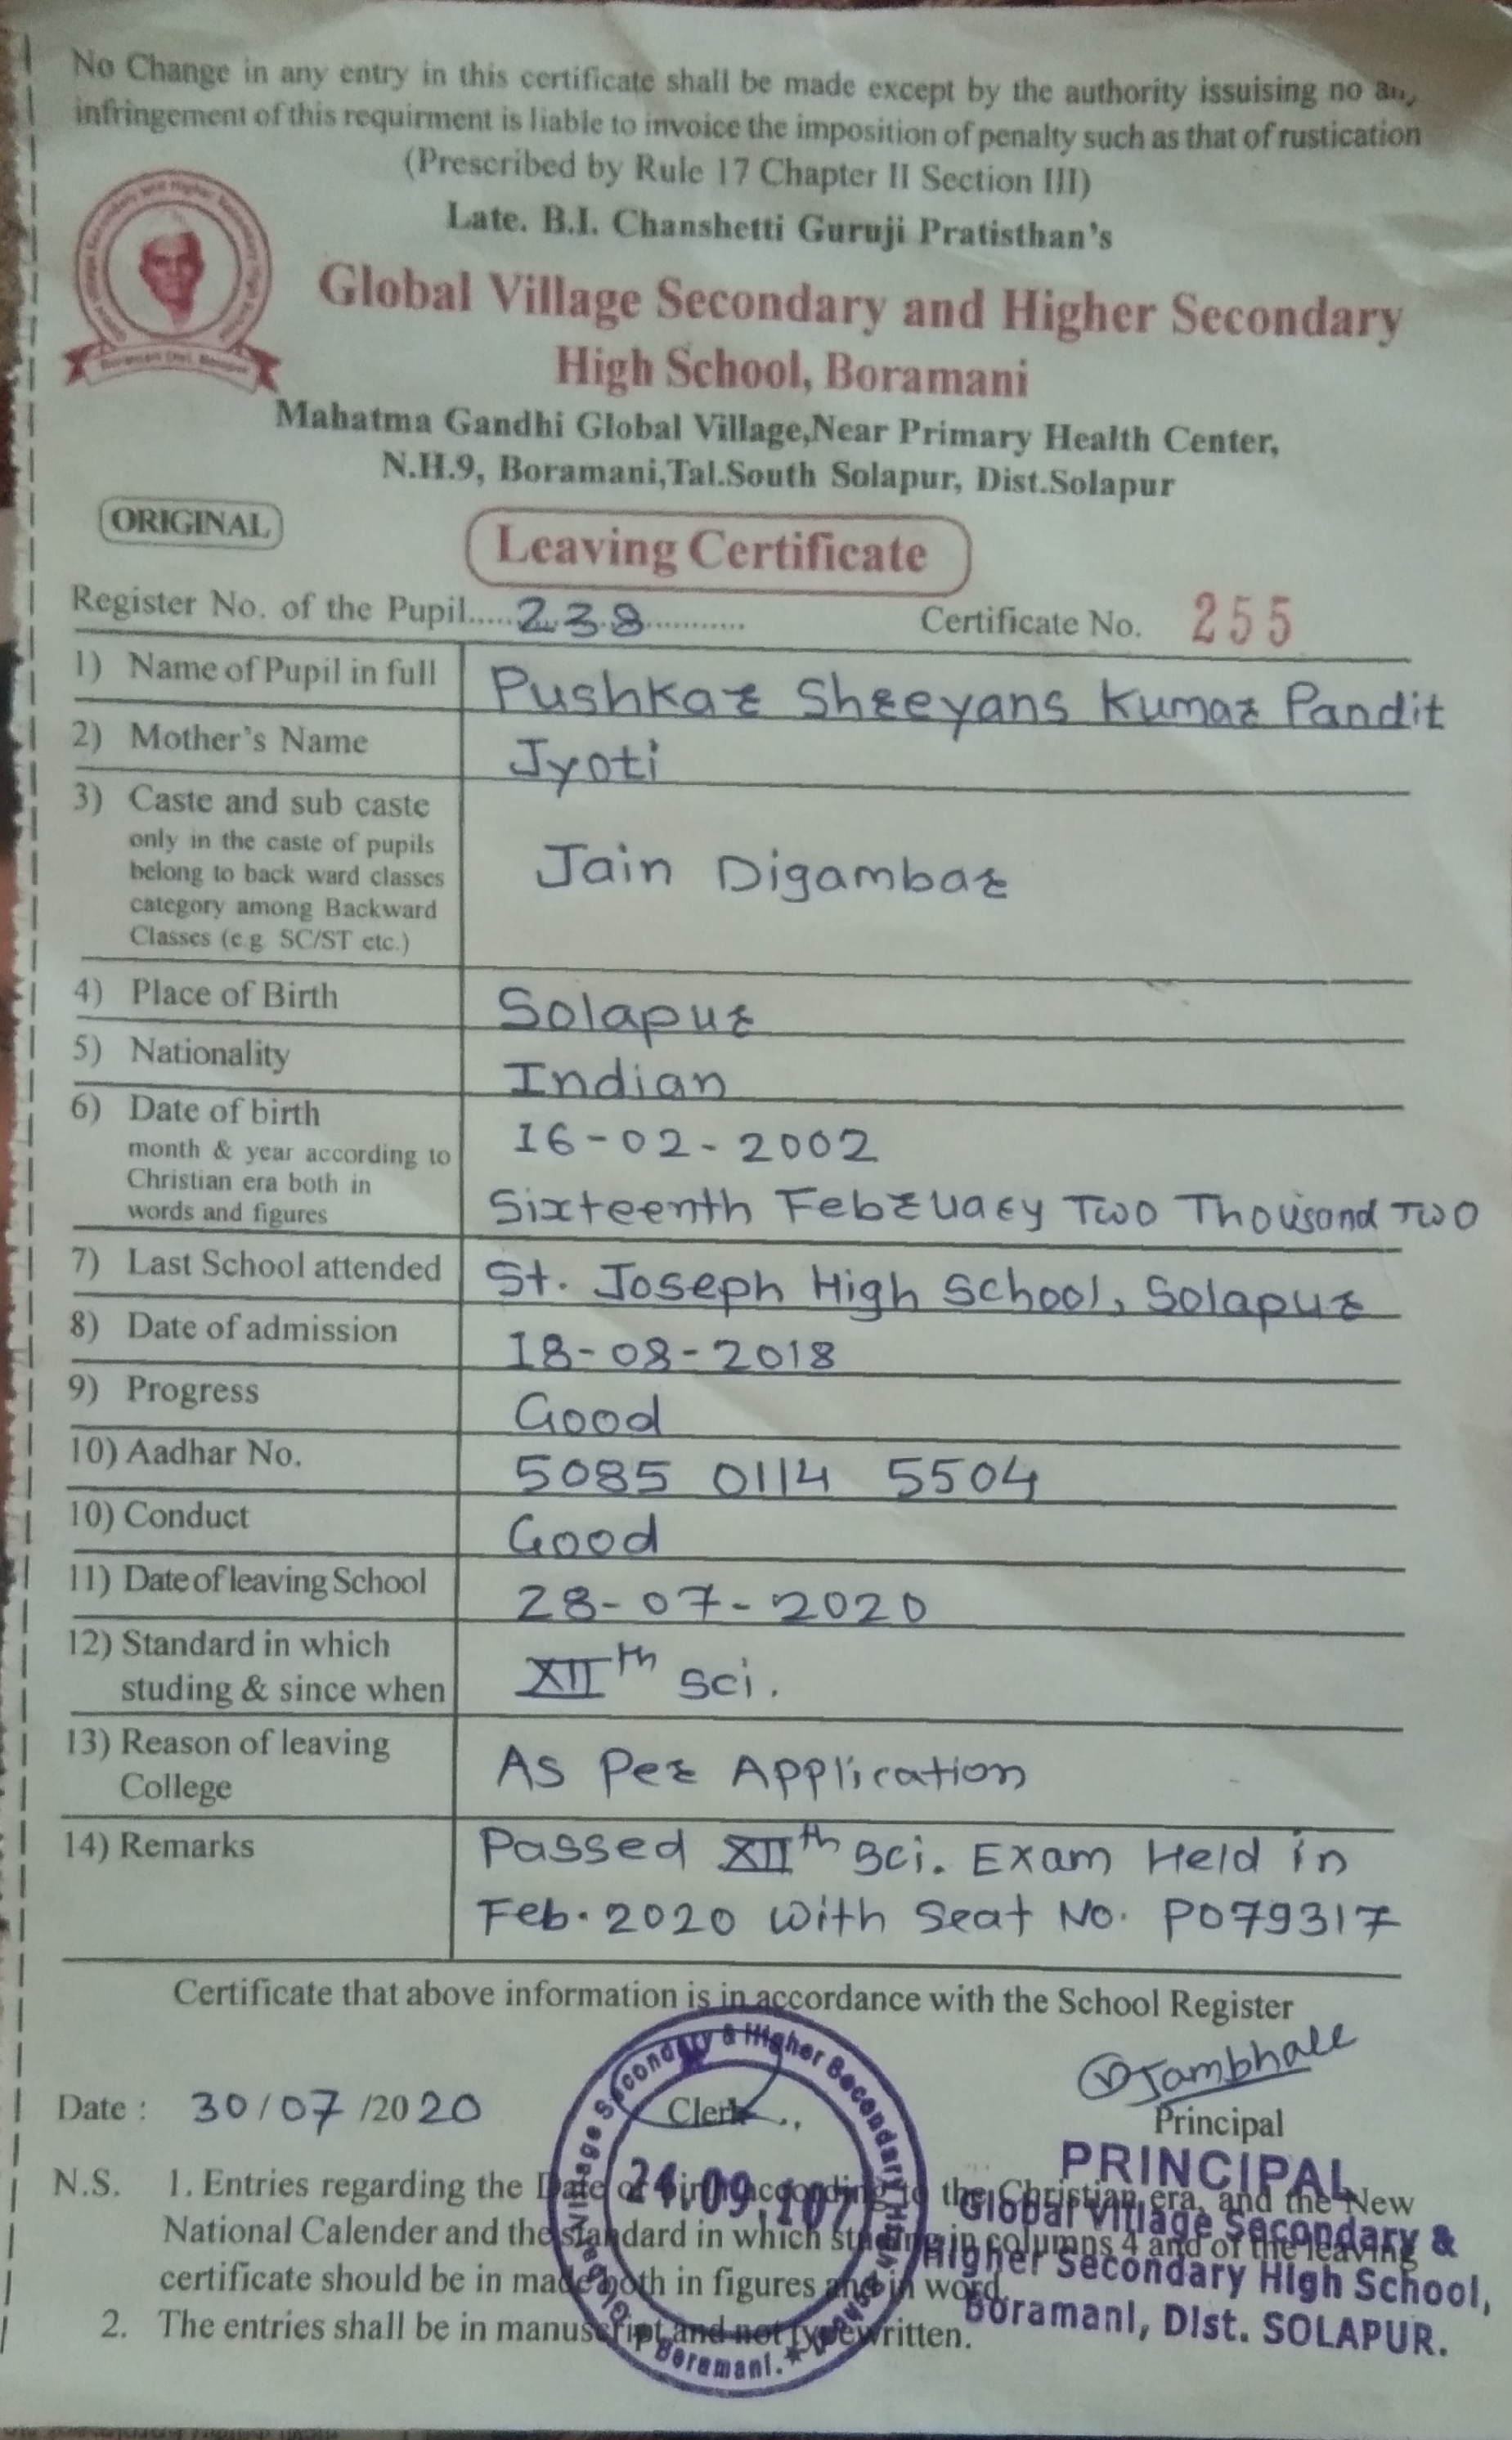 No Change in any entry in this certificate shall be made except by the authority issuising no any
infringement of this requirment is liable to invoice the imposition of penalty such as that of rustication
(Prescribed by Rule 17 Chapter II Section III)
Late. B.I. Chanshetti Guruji Pratisthan's
Global Village Secondary and Higher Secondary
High School, Boramani
Mahatma Gandhi Global Village,Near Primary Health Center,
N.H.9, Boramani,Tal.South Solapur, Dist.Solapur
ORIGINAL
Leaving Certificate
Register No. of the Pupil.....238............ Certificate No. 255
1) Name of Pupil in full Pushkar Shreyans Kumar Pandit
2) Mother's Name Jyoti
3) Caste and sub caste
only in the caste of pupils
belong to back ward classes Jain Digambar
category among Backward
Classes (e.g. SC/ST etc.)
4) Place of Birth Solapur
5) Nationality Indian
6) Date of birth 16-02-2002
month & year according to
Christian era both in
words and figures Sixteenth February Two Thousand Two
7) Last School attended St. Joseph High School, Solapur
8) Date of admission 18-08-2018
9) Progress Good
10) Aadhar No. 5085 0114 5504
10) Conduct Good
11) Date of leaving School 28-07-2020
12) Standard in which XIIth Sci.
studing & since when
13) Reason of leaving As Per Application
College
14) Remarks Passed XIIth Sci. Exam Held in
Feb. 2020 with Seat No. P079317
Certificate that above information is in accordance with the School Register
Date : 30/07/2020 Clerk Principal
PRINCIPAL
Global Village Secondary &
Higher Secondary High School,
Boramani, Dist. SOLAPUR.
N.S. 1. Entries regarding the Date of Birth according to the Christian era, and the New
National Calender and the standard in which studing in columns 4 and of the leaving
certificate should be in made both in figures and in word.
2. The entries shall be in manuscript and not typewritten.